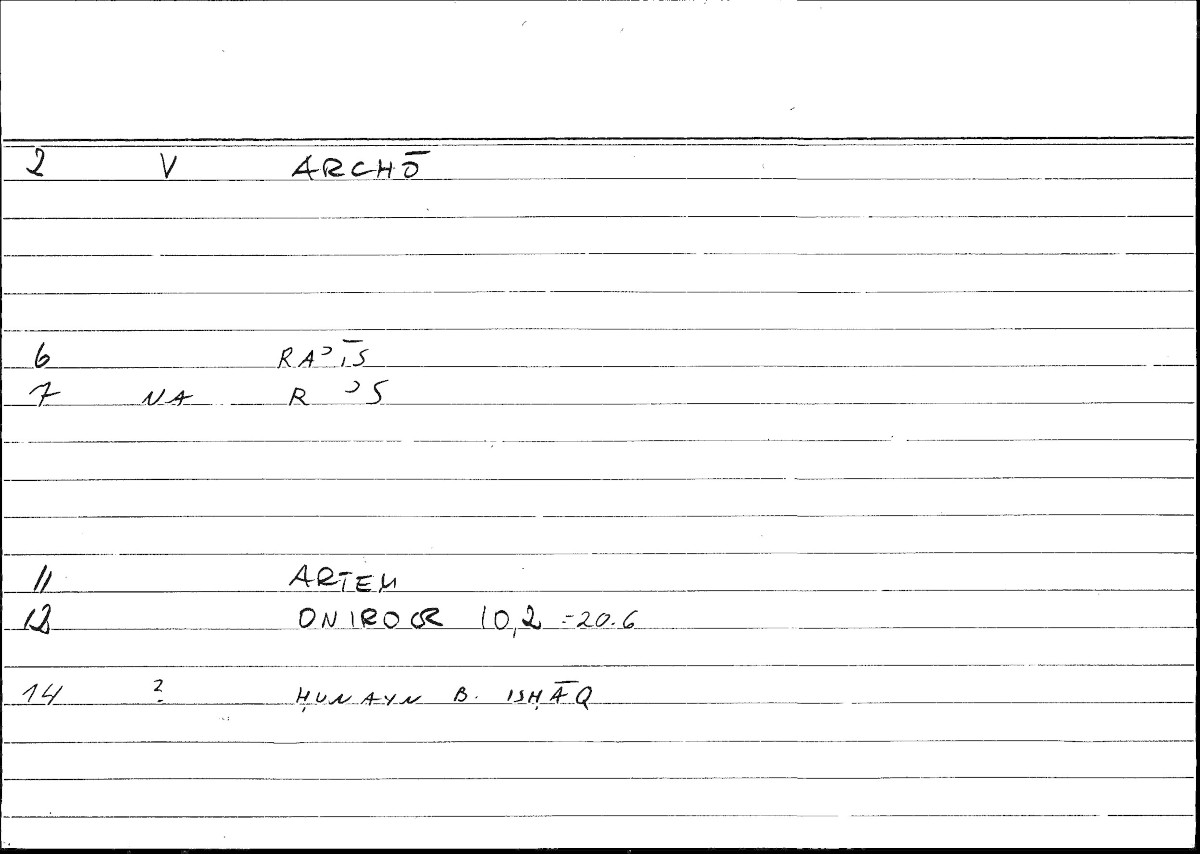 2 V ARCHŌ
6 RAʾĪS
7 NA R ʾS
11 ARTEM
12 ONIROCR 10,2 = 20.6
14 ? ḤUNAYN B. ISḤĀQ